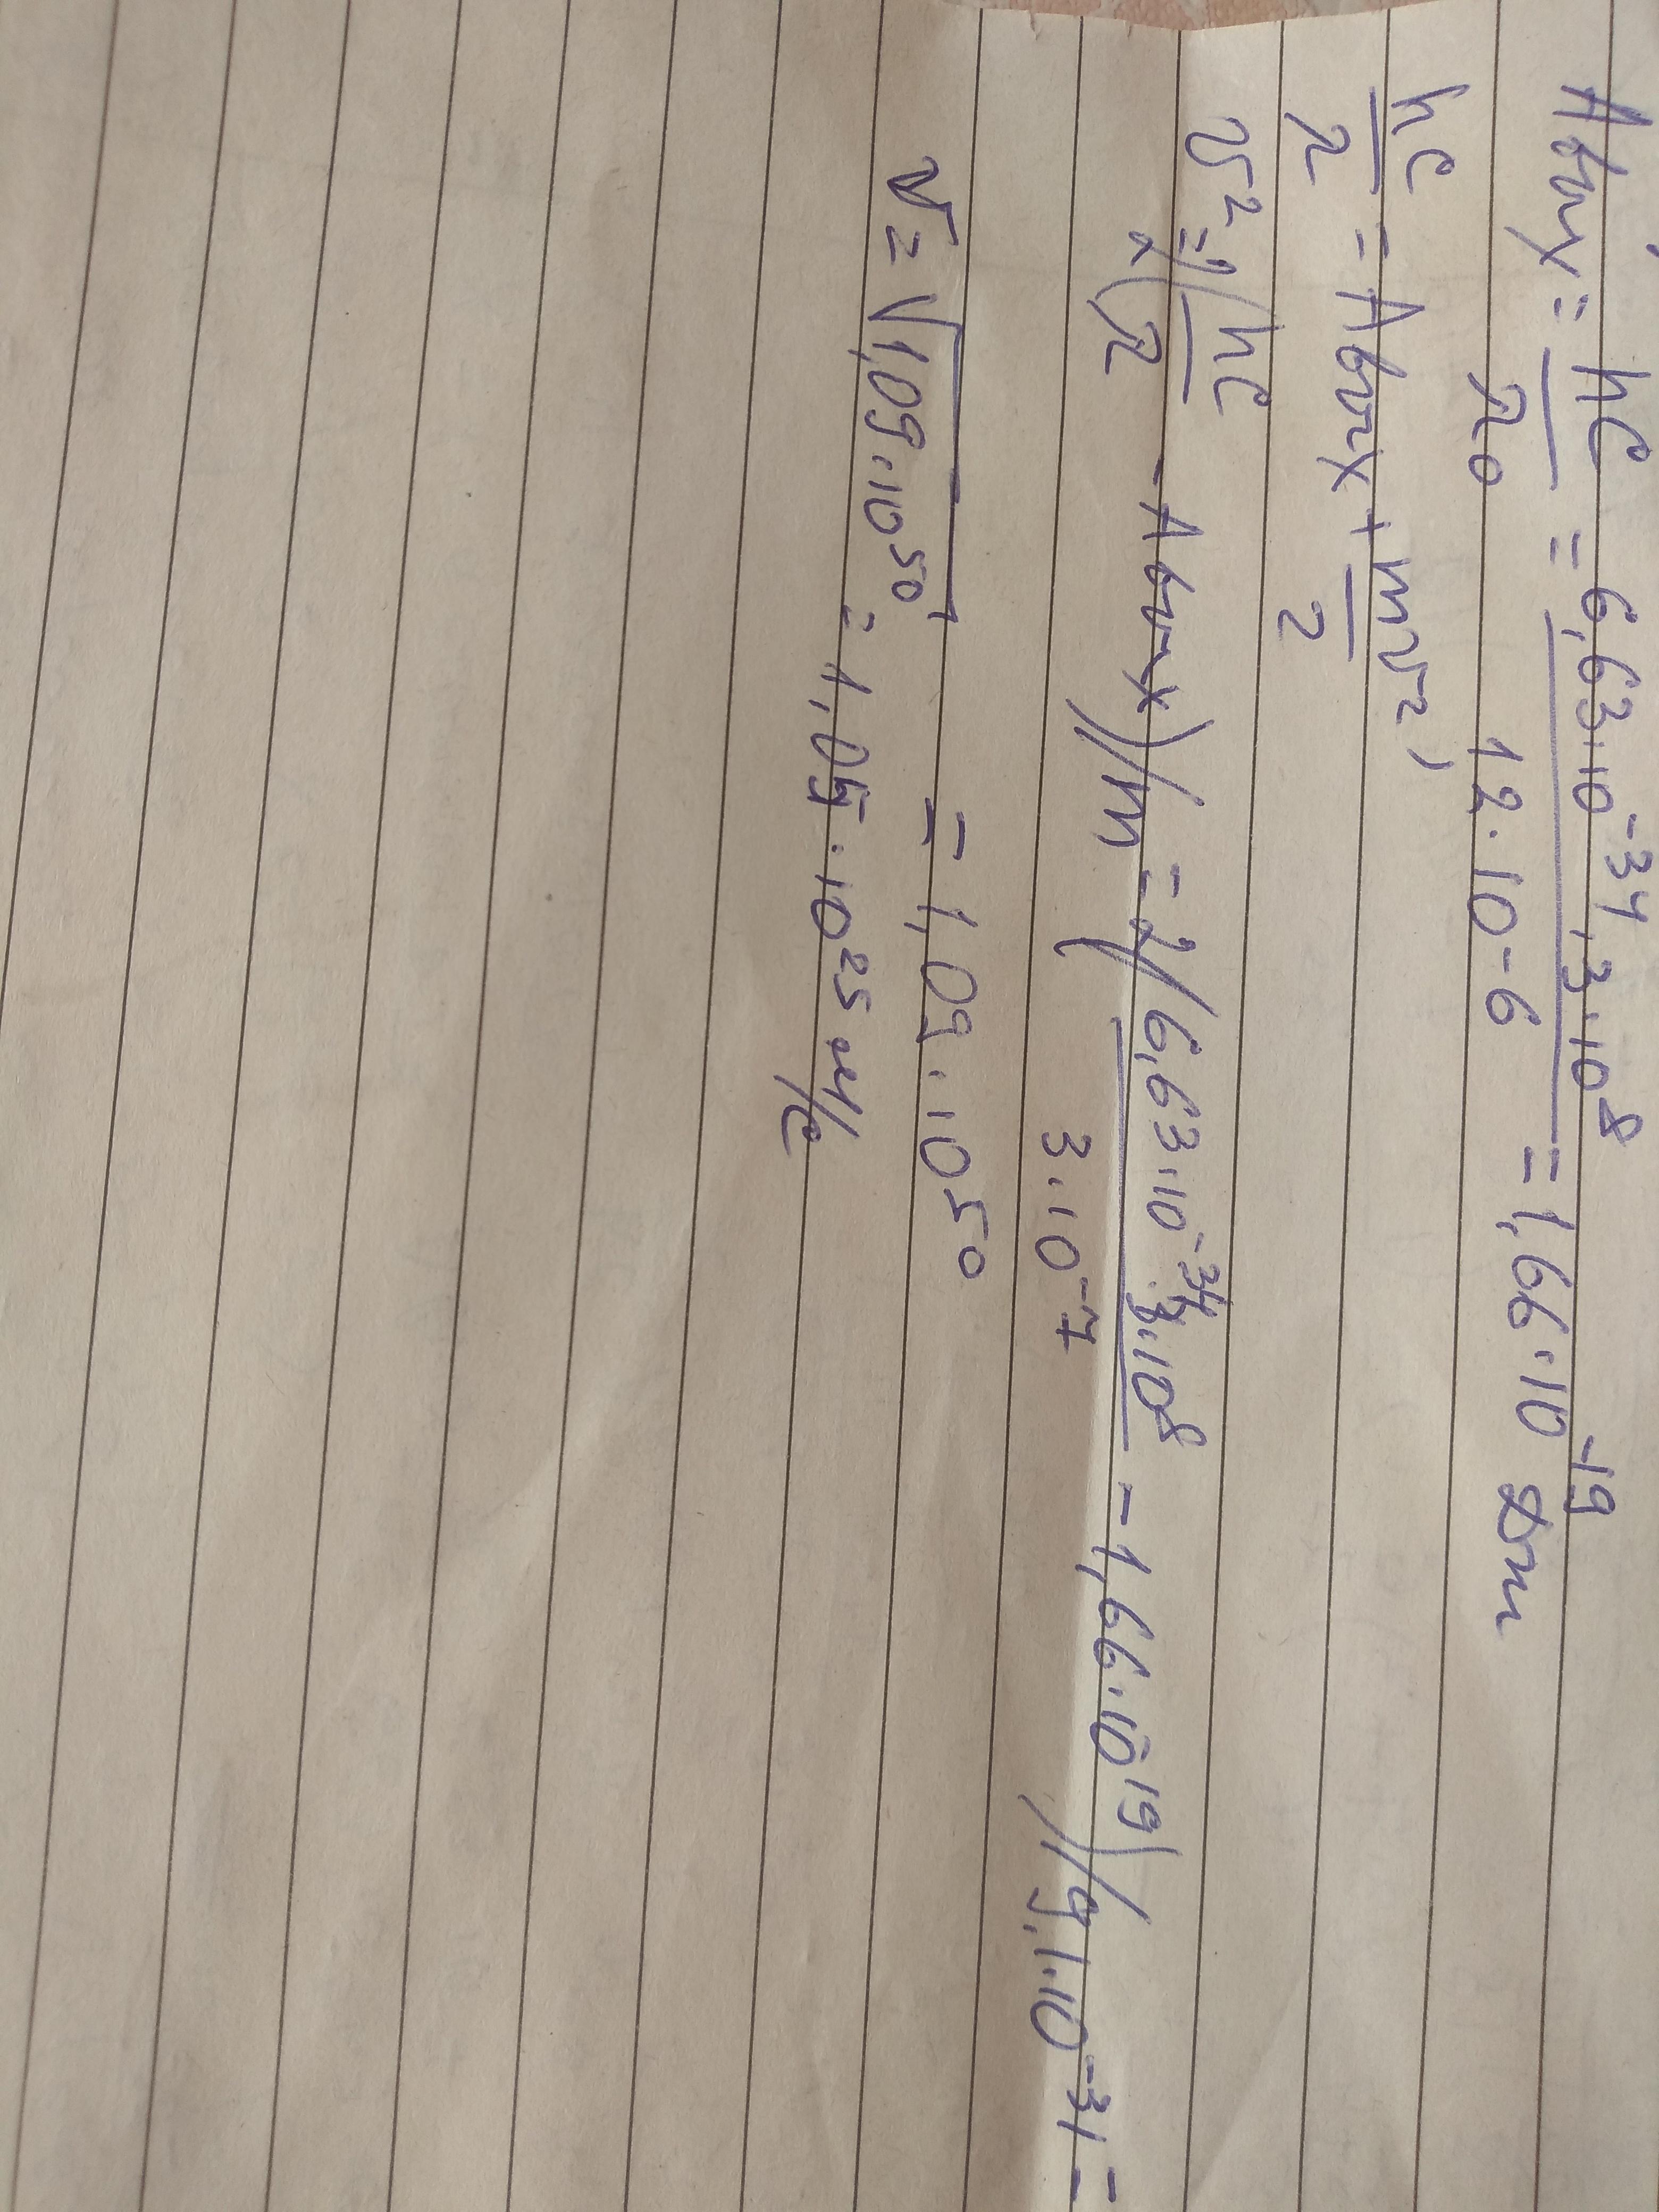 Aвых = hc/λ0 = 6,63·10^-34·3·10^8/12·10^-6 = 1,66·10^-19 Дж
hc/λ = Aвых + mv²/2;
v² = 2(hc/λ - Aвых)/m = 2(6,63·10^-34·3·10^8/3·10^-7 - 1,66·10^19)/9,1·10^-31 =
= 1,09·10^50
v = √1,09·10^50 = 1,05·10^25 м/с